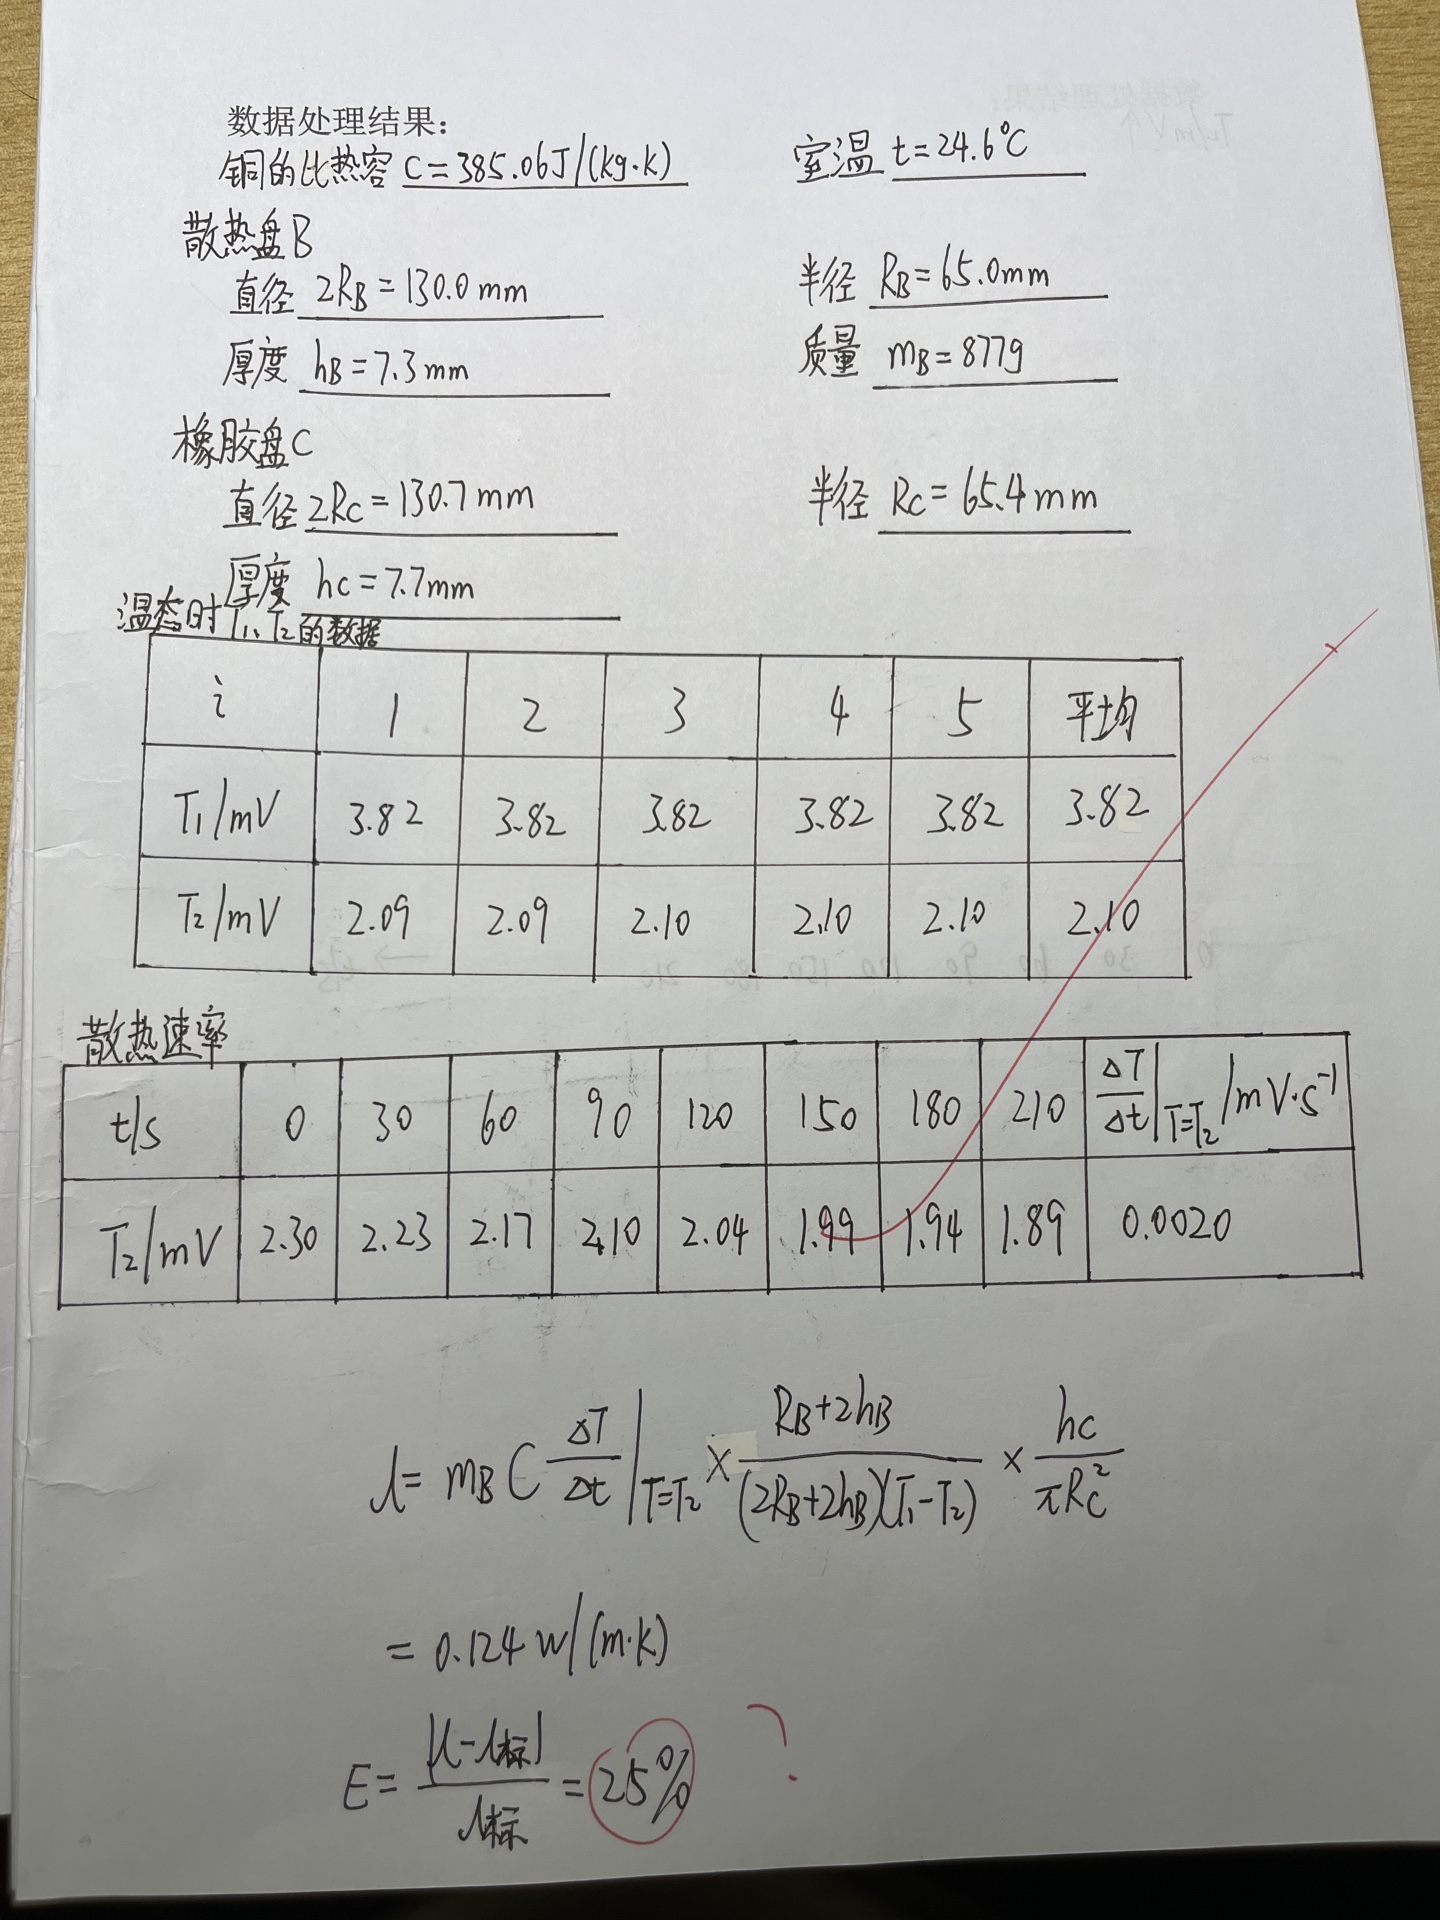 数据处理结果：
铜的比热容 C=385.06J/(kg·k) 室温 t=24.6℃
散热盘B
直径 2RB=130.0mm 半径 RB=65.0mm
厚度 hB=7.3mm 质量 mB=877g
橡胶盘C
直径 2RC=130.7mm 半径 RC=65.4mm
厚度 hc=7.7mm
温态时T1、T2的数据
i 1 2 3 4 5 平均
T1/mV 3.82 3.82 3.82 3.82 3.82 3.82
T2/mV 2.09 2.09 2.10 2.10 2.10 2.10
散热速率
t/s 0 30 60 90 120 150 180 210 ΔT/Δt|T=T2 /mV·s⁻¹
T2/mV 2.30 2.23 2.17 2.10 2.04 1.99 1.94 1.89 0.0020
λ= mB C ΔT/Δt|T=T2 × (RB+2hB)/((2RB+2hB)(T1-T2)) × hc/(πRC²)
= 0.124 W/(m·k)
E= |λ-λ标|/λ标 = 25% ?